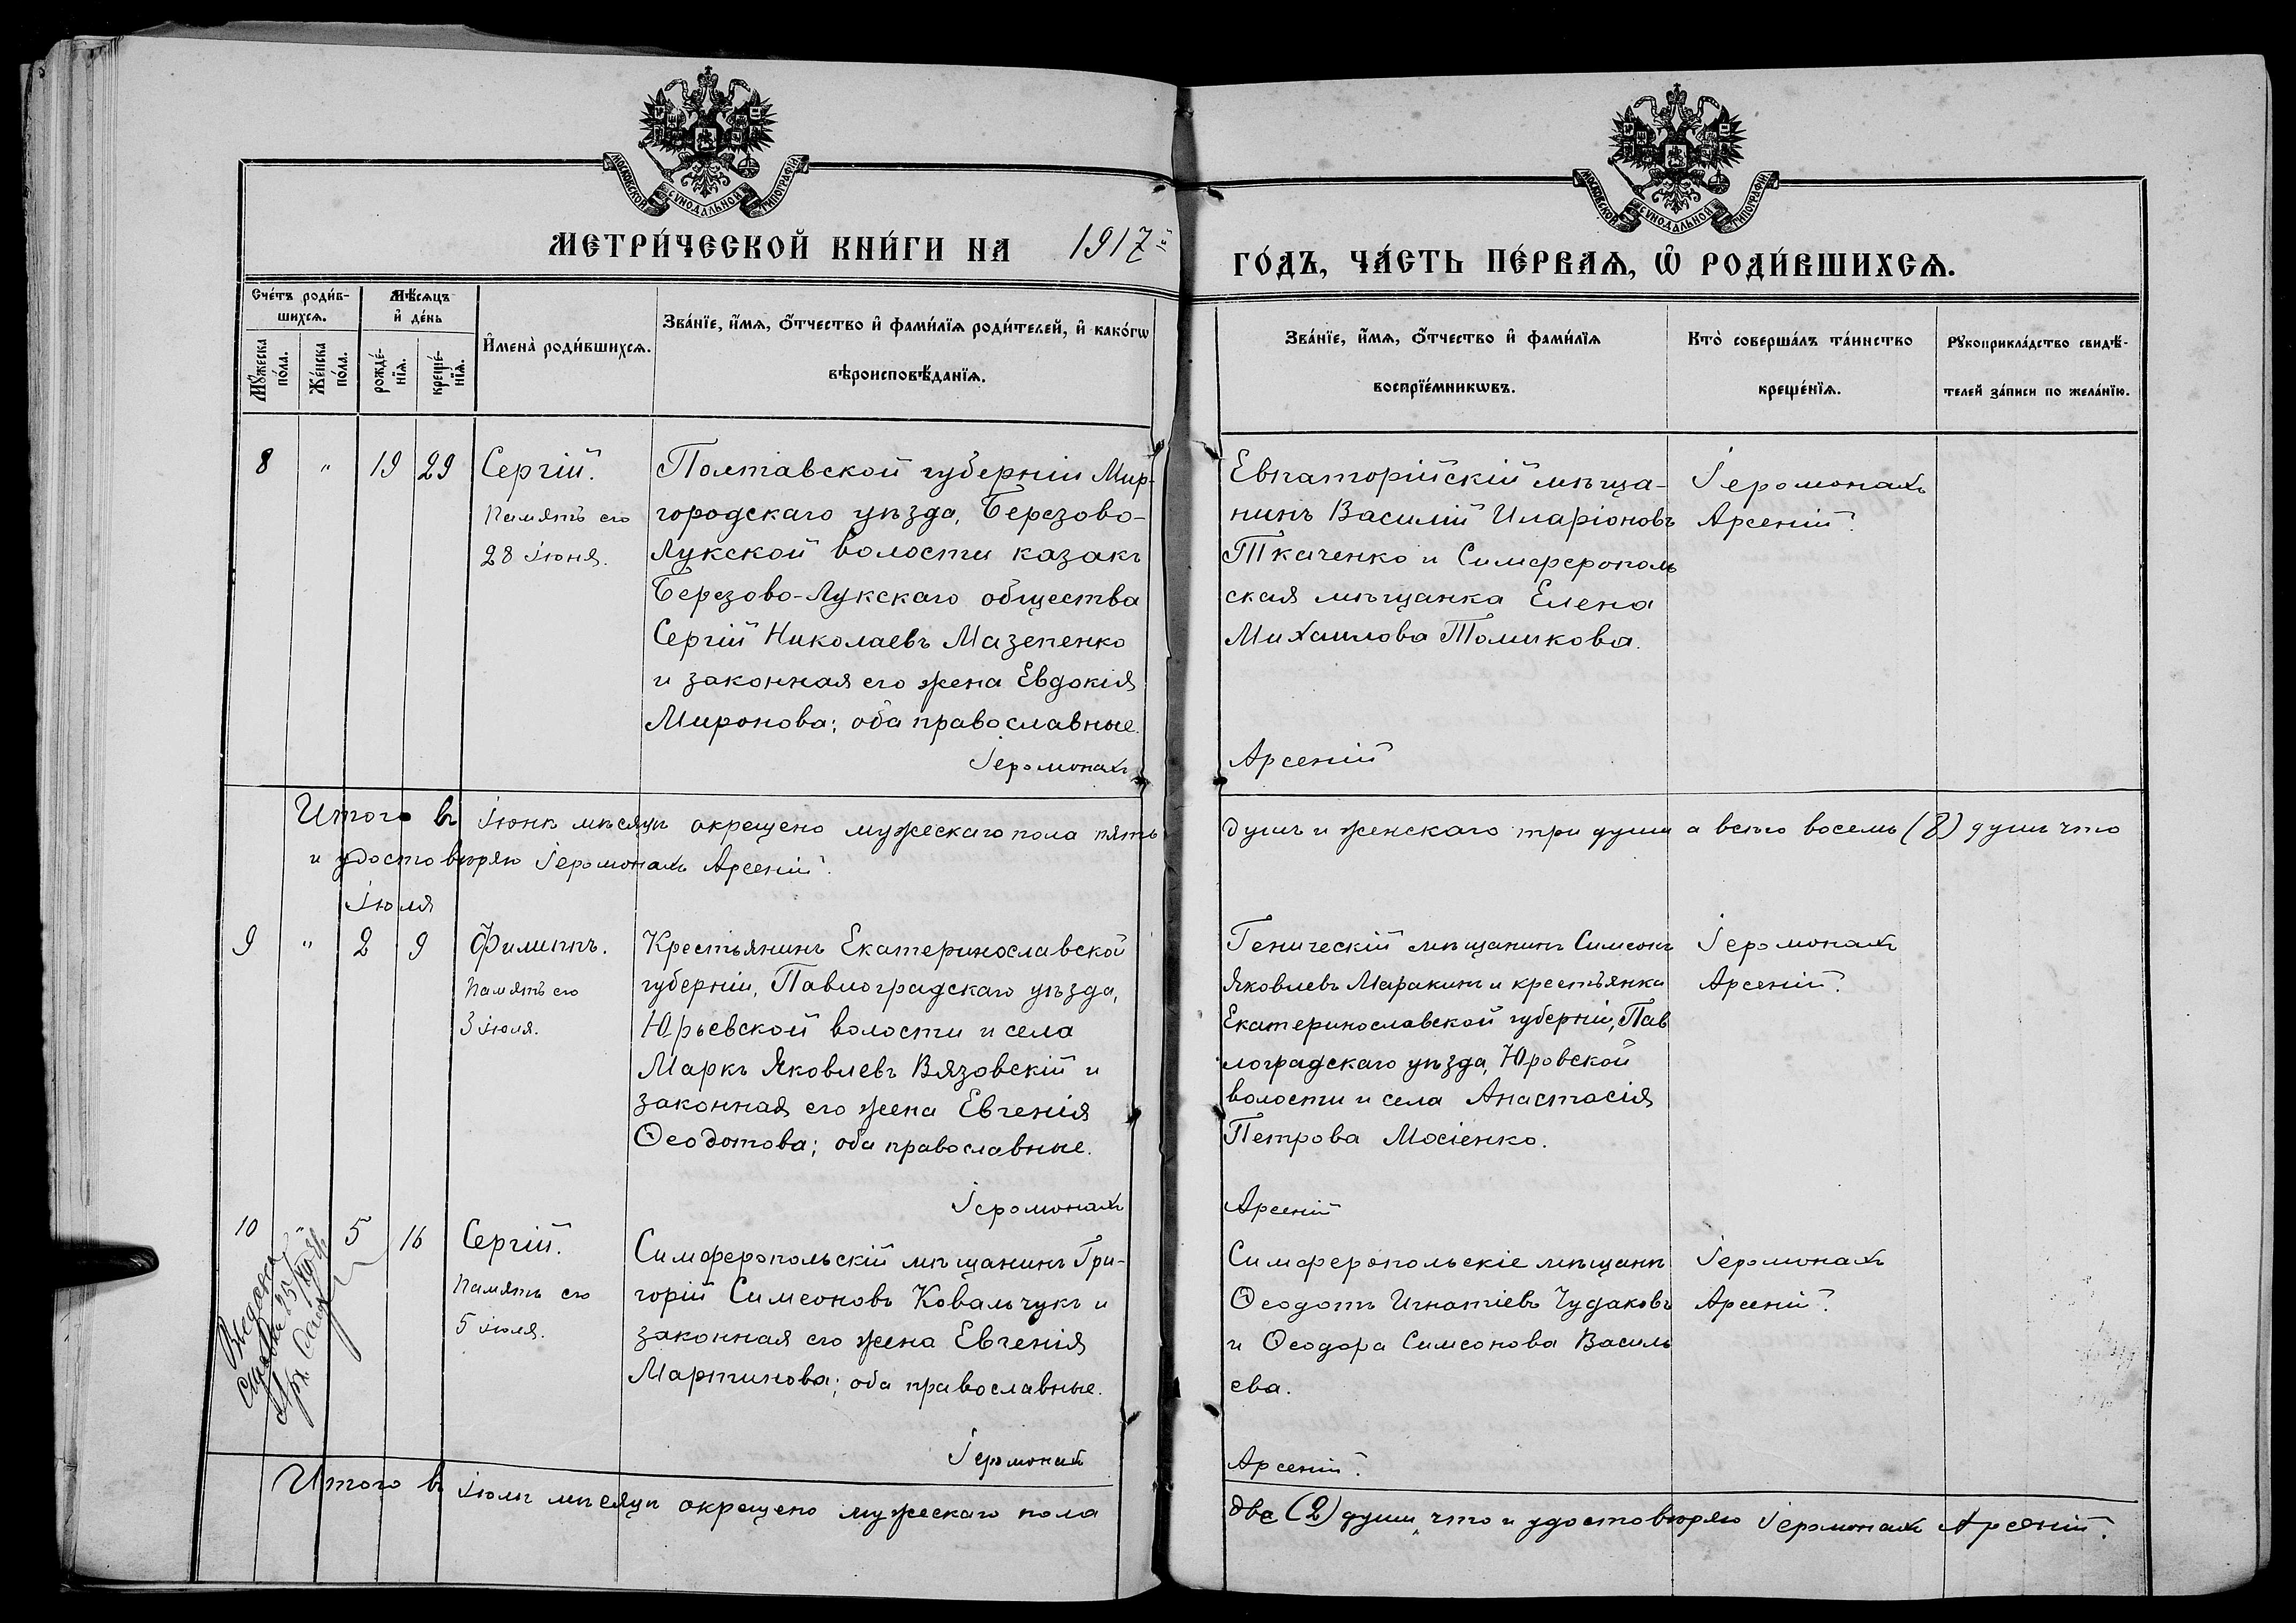 МОСКОВСКОЙ СѴНОДАЛЬНОЙ ТИПОГРАФІИ
МОСКОВСКОЙ СѴНОДАЛЬНОЙ ТИПОГРАФІИ
МЕТРИ́ЧЕСКОЙ КНИ́ГИ НА 1917й
ГО́ДЪ, ЧА́СТЬ ПЕ́РВАѦ, Ѡ҆ РОДИ́ВШИХСѦ.
Сче́тъ роди́в-
шихсѧ.
Мꙋ́жеска
по́ла.
Же́нска
по́ла.
Мѣ́сѧцъ
и҆ де́нь
рожде́-
нїѧ.
креще́-
нїѧ.
И҆мена̀ роди́вшихсѧ.
Зва́нїе, и҆́мѧ, ѻ҆́тчество и҆ фами́лїѧ роди́телей, и҆ како́гѡ
вѣроисповѣ́данїѧ.
Зва́нїе, и҆́мѧ, ѻ҆́тчество и҆ фами́лїѧ
воспрїе́мникѡвъ.
Кто̀ соверша́лъ та́инство
креще́нїѧ.
Рꙋкоприкла́дство свидѣ́-
телей за́писи по жела́нїю.
8 " 19 29
Сергій.
Память его
28 Іюня.
Полтавской губерніи Мир-
городскаго уѣзда, Березово-
Лукской волости казакъ
Березово-Лукскаго общества
Сергій Николаевъ Мазепенко
и законная его жена Евдокія
Миронова; оба православные.
Іеромонахъ
Евпаторійскій мѣща-
нинъ Василій Иларіоновъ
Ткаченко и Симферополь
ская мѣщанка Елена
Михаилова Толикова.
Арсеній
Іеромонахъ
Арсеній.
Итого въ Іюнѣ мѣсяцѣ окрещено мужескаго пола пять
душъ и женскаго три души а всего восемь (8) душъ что
и удостовѣряю Іеромонахъ Арсеній.
Іюля
9 " 2 9
Филиппъ.
Память его
3 Іюля.
Крестьянинъ Екатеринославской
губерніи, Павлоградскаго уѣзда,
Юрьевской волости и села
Маркъ Яковлевъ Вязовскій и
законная его жена Евгенія
Ѳеодотова; оба православные.
Іеромонахъ
Геническій мѣщанинъ Симеонъ
Яковлевъ Маракинъ и крестьянка
Екатеринославской губерніи, Пав
лоградскаго уѣзда, Юровской
волости и села Анастасія
Петрова Мосіенко.
Арсеній
Іеромонахъ
Арсеній.
10 " 5 16
Сергій.
Память его
5 Іюля.
Симферопольскій мѣщанинъ Гри-
горій Симеоновъ Ковальчукъ и
законная его жена Евгенія
Мартинова; оба православные.
Іеромонахъ
Симферопольскіе мѣщане
Ѳеодотъ Игнатіевъ Чудаковъ
и Ѳеодора Симеонова Василь
ева.
Арсеній.
Іеромонахъ
Арсеній.
Итого въ Іюлѣ мѣсяцѣ окрещено мужескаго пола
две (2) души, что и удостовѣряю Іеромонахъ Арсеній.